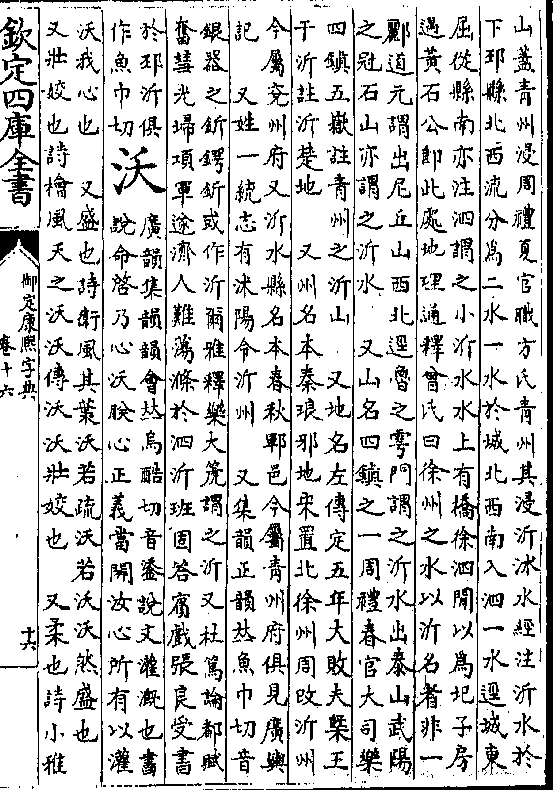 山蓋青州浸周禮夏官職方氏青州其浸沂沭水經注沂水於
下邳縣北西流分為二水一水於城北西南入泗一水逕城東
屈從縣南亦注泗謂之小沂水水上有橋徐泗間以為圯子房
遇黃石公即此處地理通釋曾氏曰徐州之水以沂名者非一
酈道元謂出尼丘山西北逕魯之雩門謂之沂水出泰山武陽
之冠石山亦謂之沂水　又山名四鎮之一周禮春官大司樂
四鎮五嶽註青州之沂山　又地名左傳定五年大敗夫槩王
于沂註沂楚地　又州名本秦琅邪地宋置北徐州周改沂州
今屬兗州府又沂水縣名本春秋鄆邑今屬青州府俱見廣輿
記　又姓一統志有沭陽令沂州　又集韻正韻𠀤魚巾切音
銀器之釿鍔釿或作沂爾雅釋樂大箎謂之沂又杜篤論都賦
奮彗光埽項軍遂濟人難蕩滌於泗沂班固荅賓戲張良受書
於邳沂俱
作魚巾切
沃
廣韻集韻韻會𠀤烏酷切音鋈說文灌溉也書
說命啓乃心沃朕心正義當開汝心所有以灌
沃我心也　又盛也詩衛風其葉沃若疏沃若沃沃然盛也
又壯姣也詩檜風天之沃沃傳沃沃壯姣也　又柔也詩小雅
欽定四庫全書
御定康熙字典
卷十六
十六